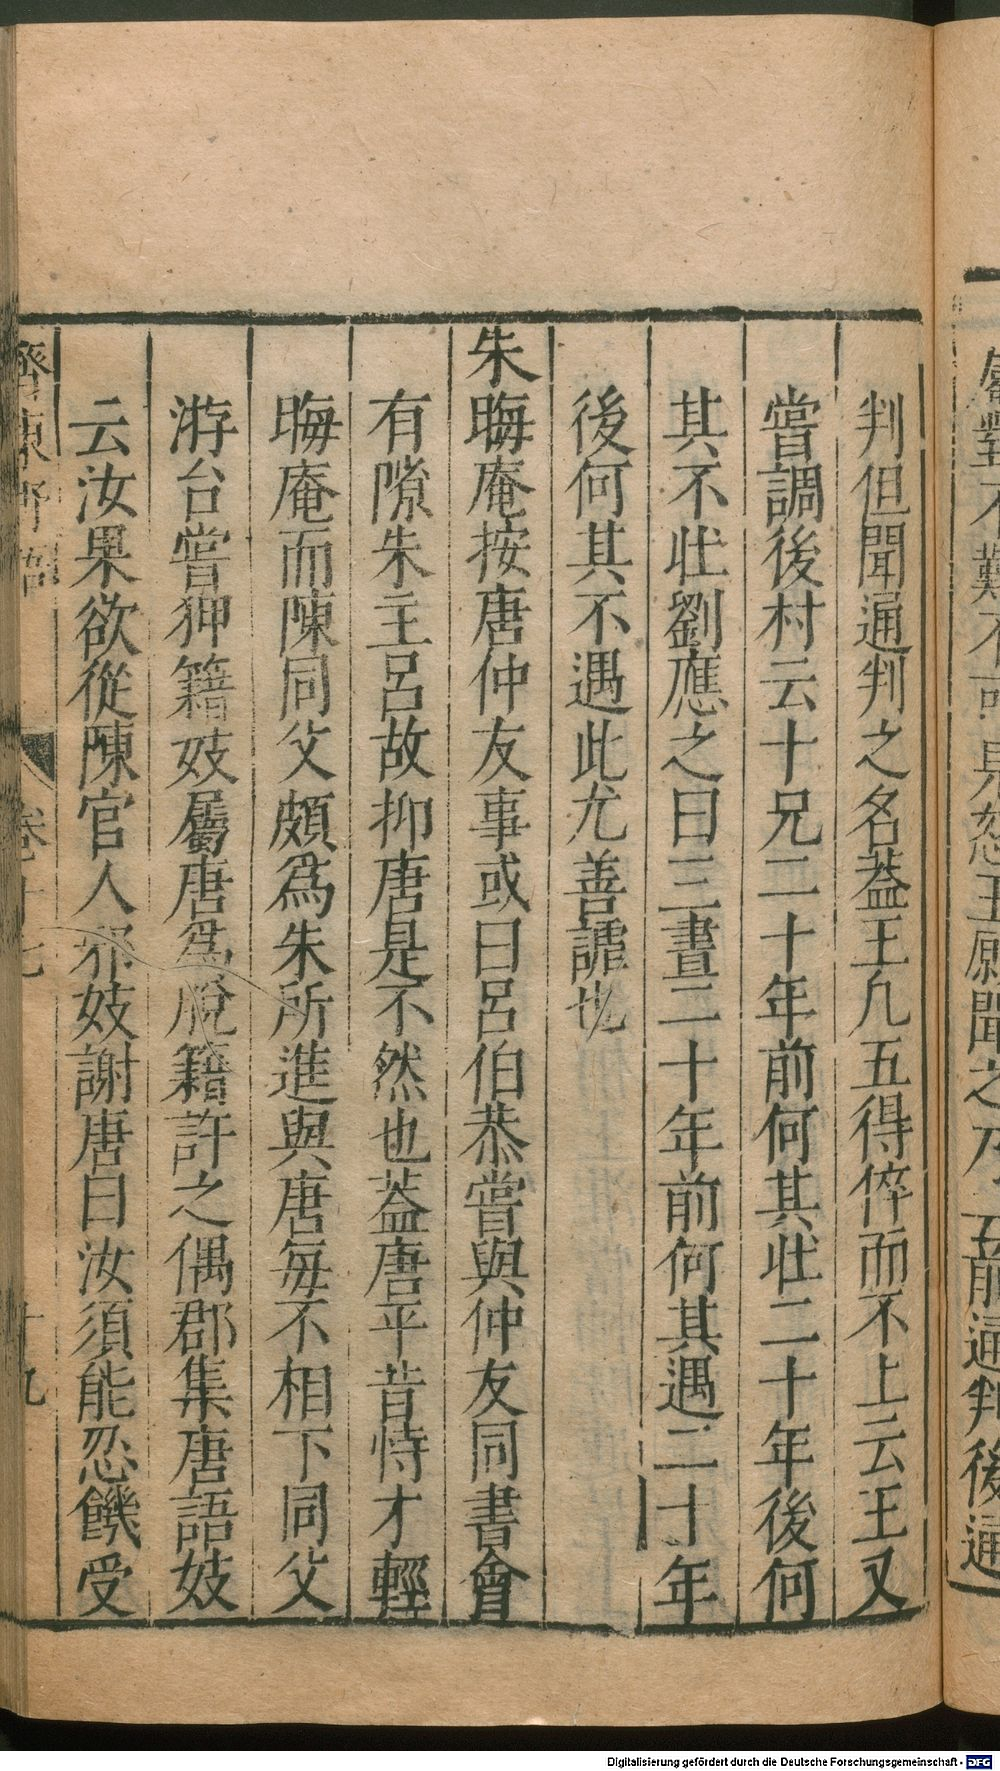 判但聞通判之名葢王凢五得倅而不上云王又
嘗調後村云十兄二十年前何其壯二十年後何
其不壯劉應之曰三畫二十年前何其遇二十年
後何其不遇此尤善謔也
朱晦庵按唐仲友事或曰呂伯恭嘗與仲友同書會
有隙朱主呂故抑唐是不然也葢唐平昔恃才輕
晦庵而陳同父頗爲朱所進與唐每不相下同父
游台嘗狎籍妓屬唐爲脫籍許之偶郡集唐語妓
云汝果欲從陳官人邪妓謝唐曰汝須能忍饑受
齊東野語
卷十七
十九
Digitalisierung gefördert durch die Deutsche Forschungsgemeinschaft - DFG